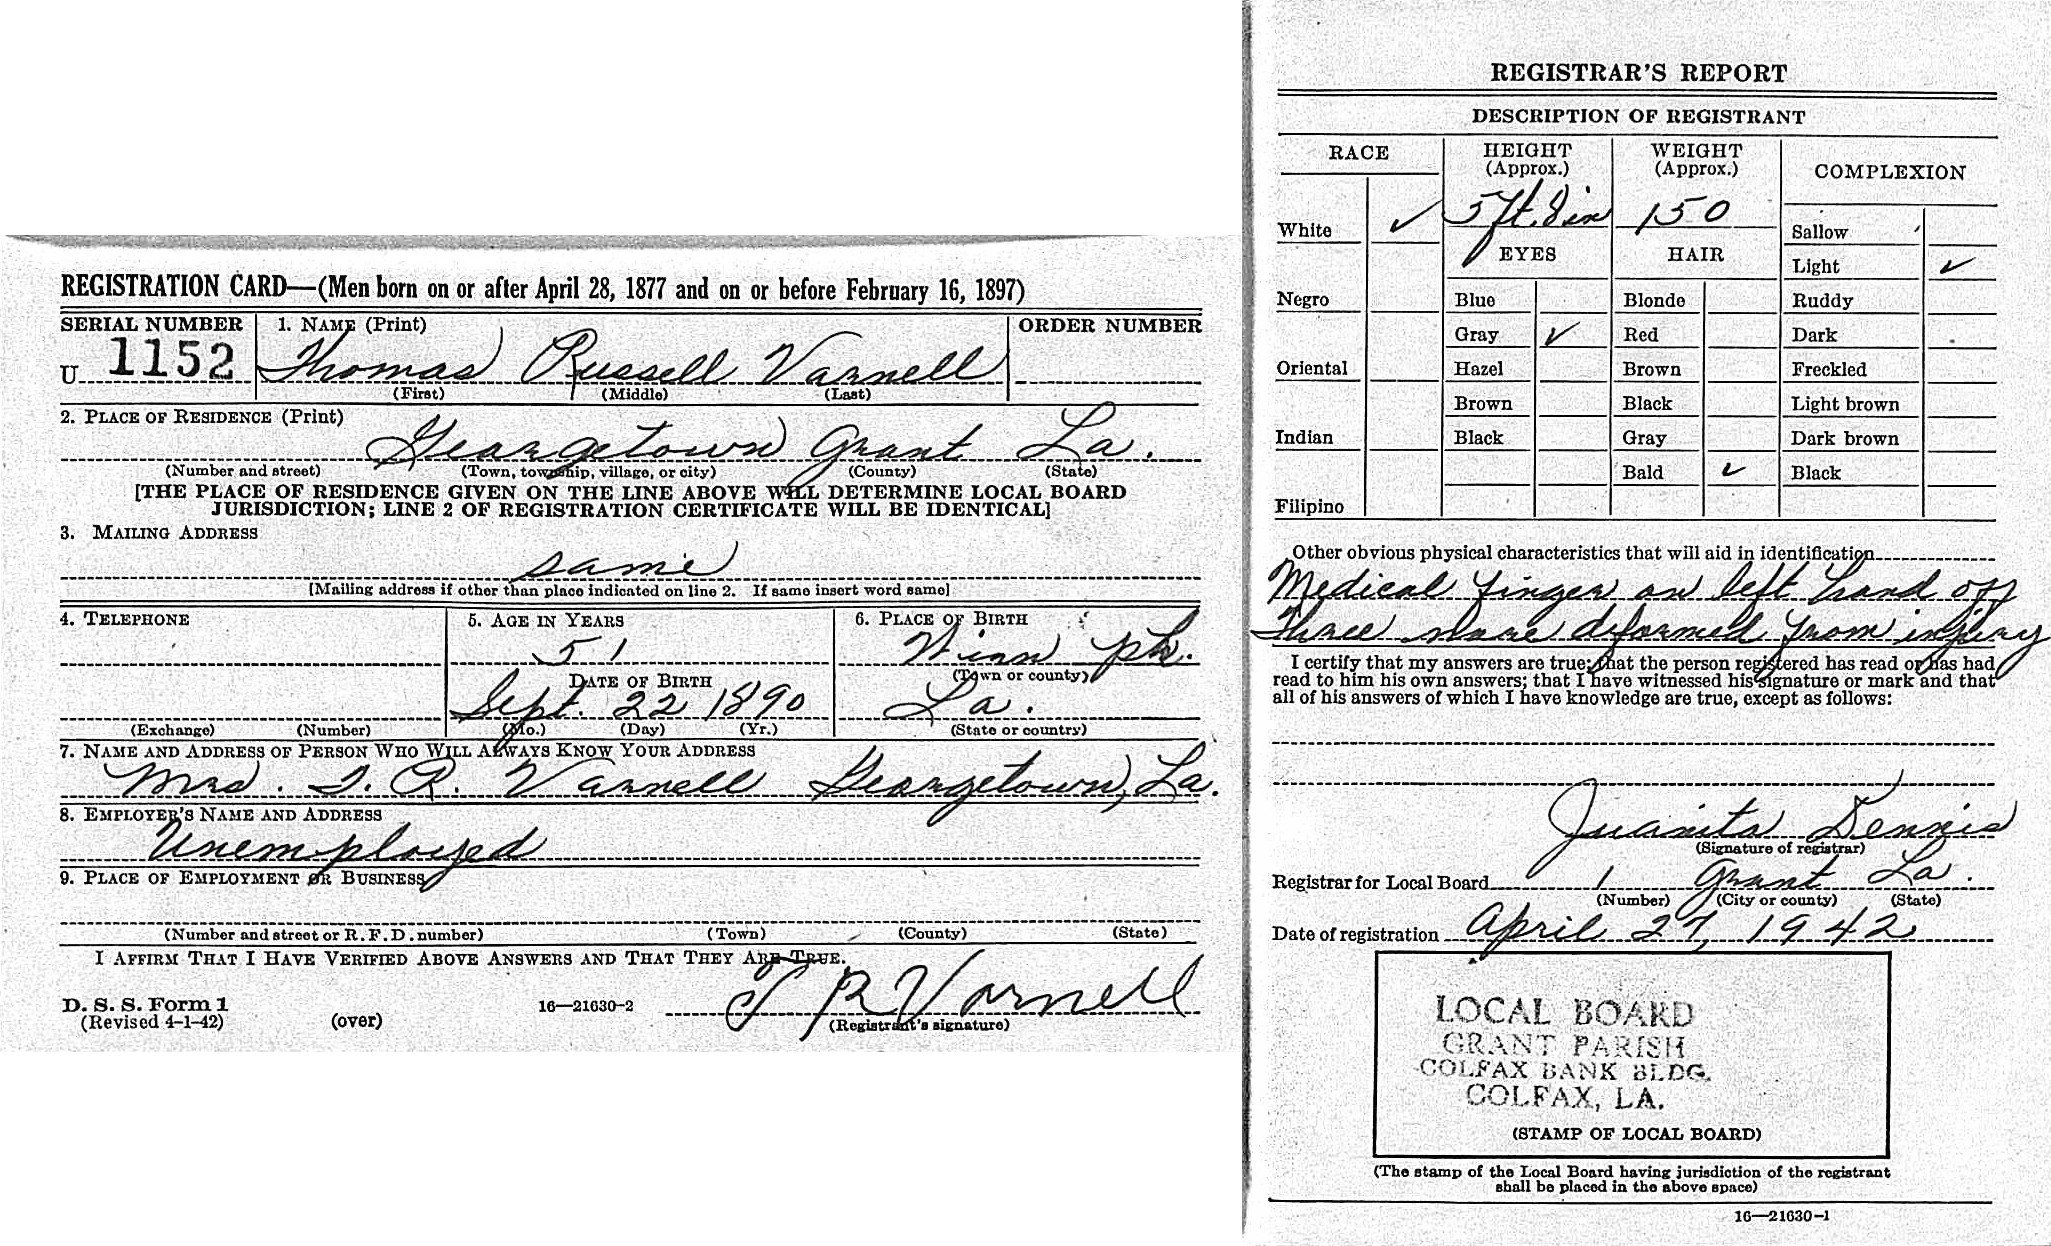 REGISTRATION CARD—(Men born on or after April 28, 1877 and on or before February 16, 1897)
SERIAL NUMBER
1. NAME (Print)
ORDER NUMBER
U 1152
Thomas Russell Varnell
(First) (Middle) (Last)
2. PLACE OF RESIDENCE (Print)
Georgetown Grant La.
(Number and street) (Town, township, village, or city) (County) (State)
[THE PLACE OF RESIDENCE GIVEN ON THE LINE ABOVE WILL DETERMINE LOCAL BOARD
JURISDICTION; LINE 2 OF REGISTRATION CERTIFICATE WILL BE IDENTICAL]
3. MAILING ADDRESS
same
[Mailing address if other than place indicated on line 2. If same insert word same]
4. TELEPHONE
(Exchange) (Number)
5. AGE IN YEARS
51
DATE OF BIRTH
Sept. 22 1890
(Mo.) (Day) (Yr.)
6. PLACE OF BIRTH
Winn ph.
(Town or county)
La.
(State or country)
7. NAME AND ADDRESS OF PERSON WHO WILL ALWAYS KNOW YOUR ADDRESS
Mrs. T. R. Varnell Georgetown, La.
8. EMPLOYER'S NAME AND ADDRESS
Unemployed
9. PLACE OF EMPLOYMENT OR BUSINESS
(Number and street or R.F.D. number) (Town) (County) (State)
I AFFIRM THAT I HAVE VERIFIED ABOVE ANSWERS AND THAT THEY ARE TRUE.
T R Varnell
D. S. S. Form 1
(Revised 4-1-42)
(over)
16—21630-2
(Registrant's signature)
REGISTRAR'S REPORT
DESCRIPTION OF REGISTRANT
RACE
HEIGHT
(Approx.)
WEIGHT
(Approx.)
COMPLEXION
White ✓
5 ft. 8 in
150
Sallow
EYES
HAIR
Light ✓
Negro
Blue
Blonde
Ruddy
Gray ✓
Red
Dark
Oriental
Hazel
Brown
Freckled
Brown
Black
Light brown
Indian
Black
Gray
Dark brown
Bald ✓
Black
Filipino
Other obvious physical characteristics that will aid in identification
Medical finger on left hand off
Three more deformed from injury
I certify that my answers are true; that the person registered has read or has had
read to him his own answers; that I have witnessed his signature or mark and that
all of his answers of which I have knowledge are true, except as follows:
Juanita Dennis
(Signature of registrar)
Registrar for Local Board 1 Grant La.
(Number) (City or county) (State)
Date of registration April 27, 1942
LOCAL BOARD
GRANT PARISH
COLFAX BANK BLDG.
COLFAX, LA.
(STAMP OF LOCAL BOARD)
(The stamp of the Local Board having jurisdiction of the registrant
shall be placed in the above space)
16—21630-1